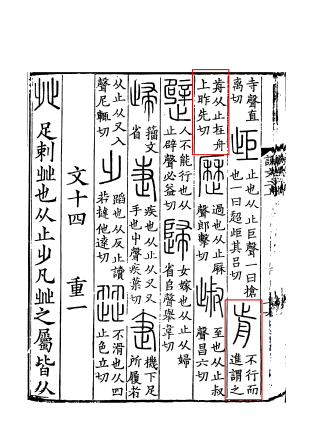 寺聲直离切 歫 止也从止巨聲一曰搶也一曰超歫其呂切 歬 不行而進謂之
歬从止在舟上昨先切 歷 過也从止厤聲郎擊切 埱 至也从止叔聲昌六切
壁 人不能行也从止辟聲必益切 歸 女嫁也从止从婦省𠂤聲舉韋切
㷌 籒文省 疌 疾也从止从又又手也屮聲疾葉切 疌 機下足所履者
从止从又入聲尼輒切 𣥂 蹈也从反止讀若撻他達切 歰 不滑也从四止色立切
文十四 重一
癶 足剌癶也从止𣥂凡癶之屬皆从